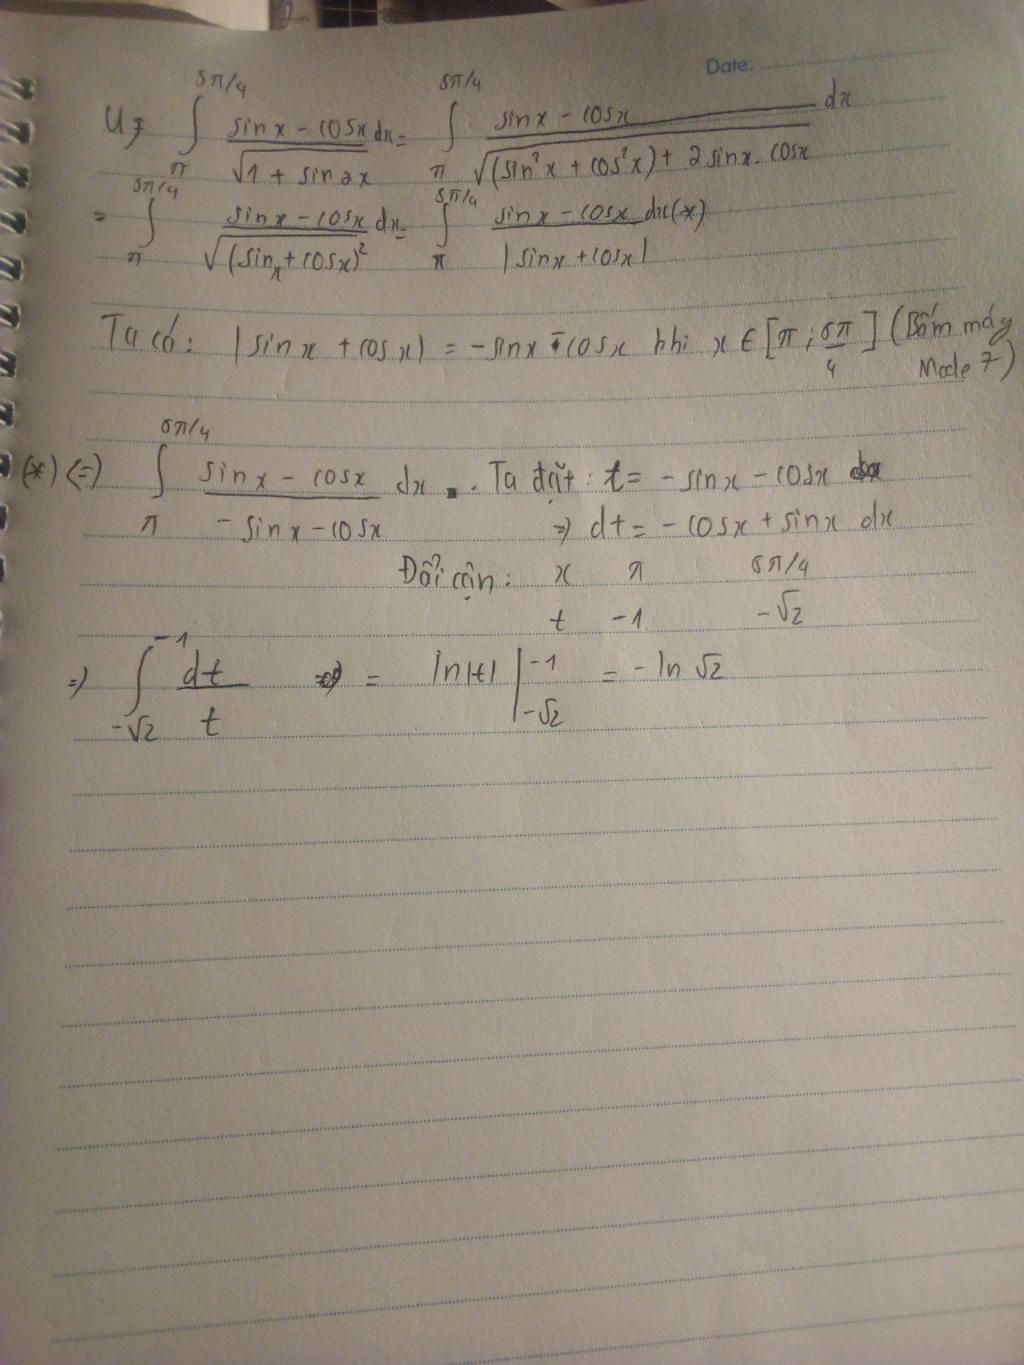 Date:
U = ∫_π^{5π/4} (sinx - cosx)/√(1 + sin2x) dx = ∫_π^{5π/4} (sinx - cosx)/√((sin²x + cos²x) + 2sinx.cosx) dx
= ∫_π^{5π/4} (sinx - cosx)/√((sinx + cosx)²) dx = ∫_π^{5π/4} (sinx - cosx)/|sinx + cosx| dx (*)
Ta có: |sinx + cosx| = -sinx - cosx khi x ∈ [π ; 5π/4] (Bấm máy Mode 7)
(*) (=) ∫_π^{5π/4} (sinx - cosx)/(-sinx - cosx) dx . Ta đặt: t = -sinx - cosx
=) dt = -cosx + sinx dx
Đổi cận: x π 5π/4
t -1 -√2
=) ∫_{-√2}^{-1} dt/t = ln|t| |_{-√2}^{-1} = -ln√2